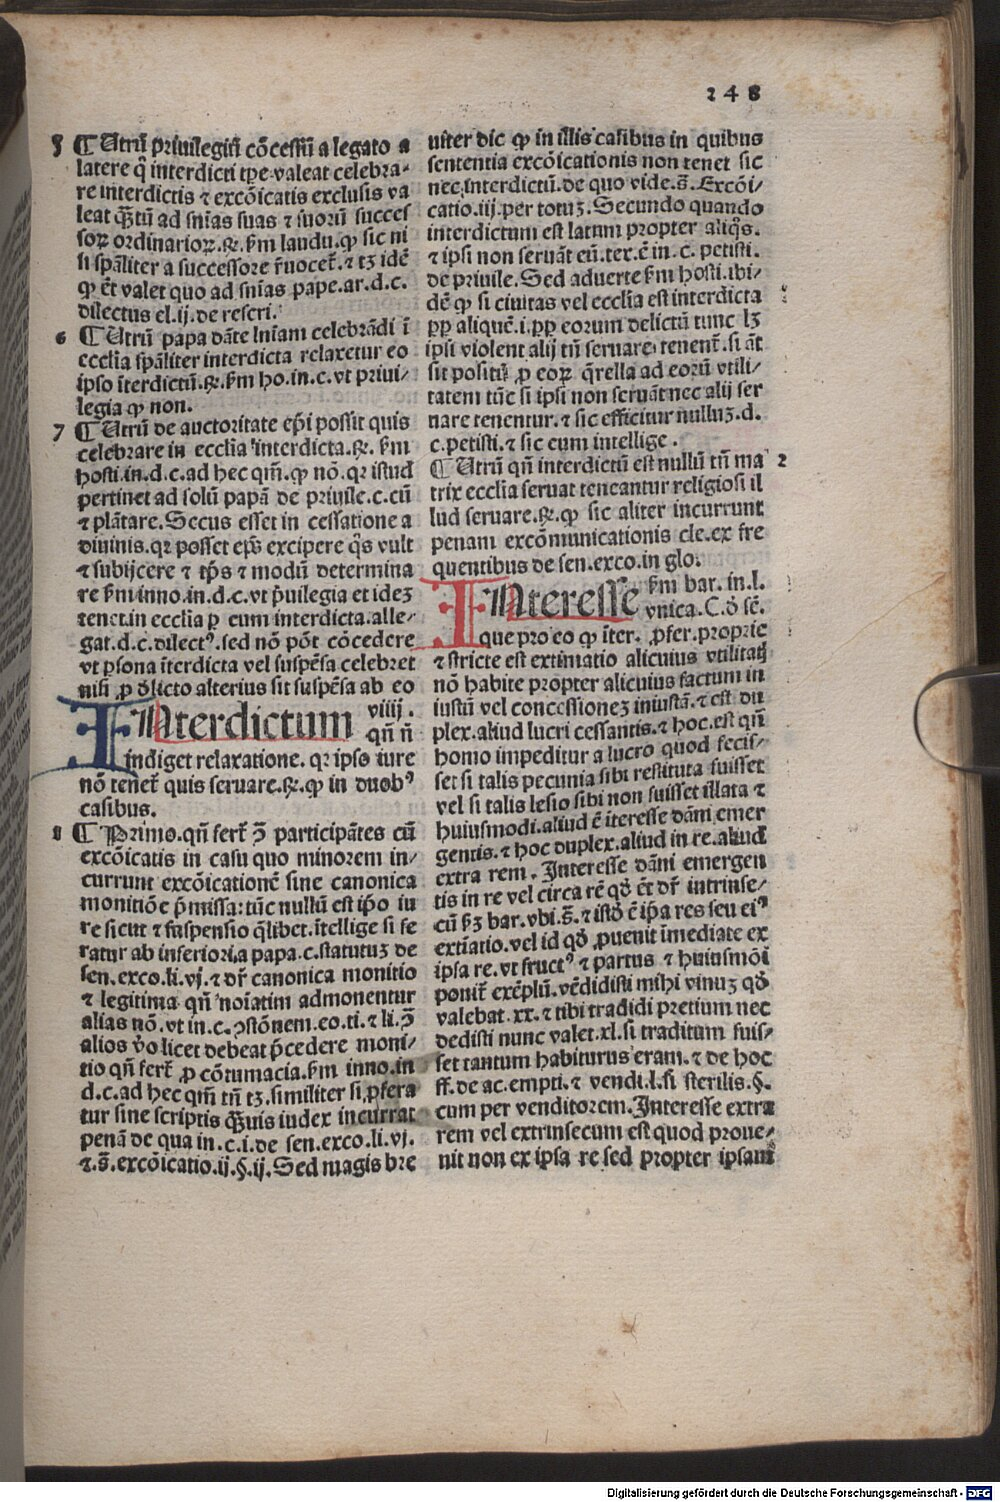 248
5 ¶ Utrū priuilegiū cōcessū a legato a
latere q̄ interdicti tp̄e valeat celebra-
re interdictis ⁊ excōicatis exclusis va
leat q̄ꝫtū ad sn̄ias suas ⁊ suorū succes
soꝝ ordinarioꝝ.℞.ẜm laudu.ꝙ sic ni
si sp̄aliter a successore r̄uocet̄.⁊ tꝫ idē
ꝙ ēt valet quo ad sn̄ias pape.ar.d.c.
dilectus el.ij.de rescri.
6 ¶ Utrū papa dāte lniam celebrādi ī
ecclīa sp̄aliter interdicta relaxetur eo
ipso īterdictū.℞.ẜm ho.in.c.vt priui/
legia ꝙ non.
7 ¶ Utrū de auctoritate ep̄i possit quis
celebrare in ecclīa interdicta.℞. ẜm
hosti.in.d.c.ad hec qm̄.ꝙ nō.qꝛ istud
pertinet ad solū papā de priuile.c.cū
⁊ plātare.Secus esset in cessatione a
diuinis.qꝛ posset ep̄s excipere q̄s vult
⁊ subijcere ⁊ tp̄s ⁊ modū determina
re ẜm inno.in.d.c.vt p̄uilegia et ideꝫ
tenet.in ecclīa ꝑ eum interdicta.alle-
gat.d.c.dilectꝰ.sed nō pōt cōcedere
vt ꝑsona īterdicta vel suspēsa celebret
nisi ꝓ d̄licto alterius sit suspēsa ab eo
INterdictum viiij.
qn̄ n̄
indiget relaxatione. qꝛ ipso iure
nō tenet̄ quis seruare.℞.ꝙ in duobꝰ
casibus.
1 ¶ Primo.qn̄ fert̄ ↄ̄ participātes cū
excōicatis in casu quo minorem in/
currunt excōicationē sine canonica
monitiōe p̄missa:tūc nullū est ip̄o iu
re sicut ⁊ suspensio q̄libet.ītellige si fe
ratur ab inferiori a papa.c.statutuꝫ de
sen.exco.li.vj.⁊ dr̄ canonica monitio
⁊ legitima qn̄ noīatim admonentur
alias nō.vt in.c.ↄstōnem.eo.ti.⁊ li.ↄ̄
alios v̄o licet debeat p̄cedere moni/
tio qn̄ fert̄ ꝓ cōtumacia.ẜm inno.in
d.c.ad hec qm̄ tn̄ tꝫ.similiter si ꝓfera
tur sine scriptis q̄ꝫuis iudex incurrat
penā de qua in.c.i.de sen.exco.li.vj.
⁊.s̄.excōicatio.ij.§.ij.Sed magis bre
uiter dic ꝙ in illis casibus in quibus
sententia excōicationis non tenet sic
nec interdictū.de quo vide.s̄.Excōi/
catio.iij.per totuꝫ.Secundo quando
interdictum est latum propter aliq̄s.
⁊ ipsi non seruāt eū.tex.ē in.c. petisti.
de priuile.Sed aduerte ẜm hosti.ibi/
dē ꝙ si ciuitas vel ecclīa est interdicta
ꝓp̄ aliquē.i.ꝓp̄ eorum delictū tunc lꝫ
ipsi violent alij tn̄ seruare tenent̄.si āt
sit positū ꝓ eoꝝ q̄rella ad eorū vtili/
tatem tūc si ipsi non seruāt nec alij ser
uare tenentur.⁊ sic efficitur nulluꝫ.d.
c.petisti.⁊ sic eum intellige.
¶ Utrū qn̄ interdictū est nullū tn̄ ma 2
trix ecclīa seruat teneantur religiosi il
lud seruare.℞.ꝙ sic aliter incurrunt
penam excōmunicationis cle.ex fre
quentibus de sen.exco.in glo.
INteresse ẜm bar.in.l.
vnica.C.d̄ sē.
que pro eo ꝙ īter. ꝓfer.proprie
⁊ stricte est extimatio alicuius vtilitatꝭ
nō habite propter alicuius factum in
iustū vel concessioneꝫ iniustā.⁊ est du
plex.aliud lucri cessantis.⁊ hoc.est qn̄
homo impeditur a lucro quod fecis/
set si talis pecunia sibi restituta fuisset
vel si talis lesio sibi non fuisset illata ⁊
huiusmodi.aliud ē īteresse dāni emer
gentis.⁊ hoc duplex.aliud in re.aliud
extra rem. Interesse dāni emergen
tis in re vel circa rē qd̄ ēt dr̄ intrinse/
cū ẜꝫ bar.vbi.s̄.⁊ istd̄ ē ip̄a res seu eiꝰ
extīatio.vel id qd̄ ꝓuenit īmediate ex
ipsa re.vt fructꝰ ⁊ partus ⁊ huiusmōi
ponit̄ exēplū.vēdidisti mihi vinuꝫ qd̄
valebat.xx.⁊ tibi tradidi pretium nec
dedisti nunc valet.xl.si traditum fuis/
set tantum habiturus eram.⁊ de hoc
ff.de ac.empti.⁊ vendi.l.si sterilis.§.
cum per venditorem.Interesse extra
rem vel extrinsecum est quod proue/
nit non ex ipsa re sed propter ipsam
Digitalisierung gefördert durch die Deutsche Forschungsgemeinschaft - DFG